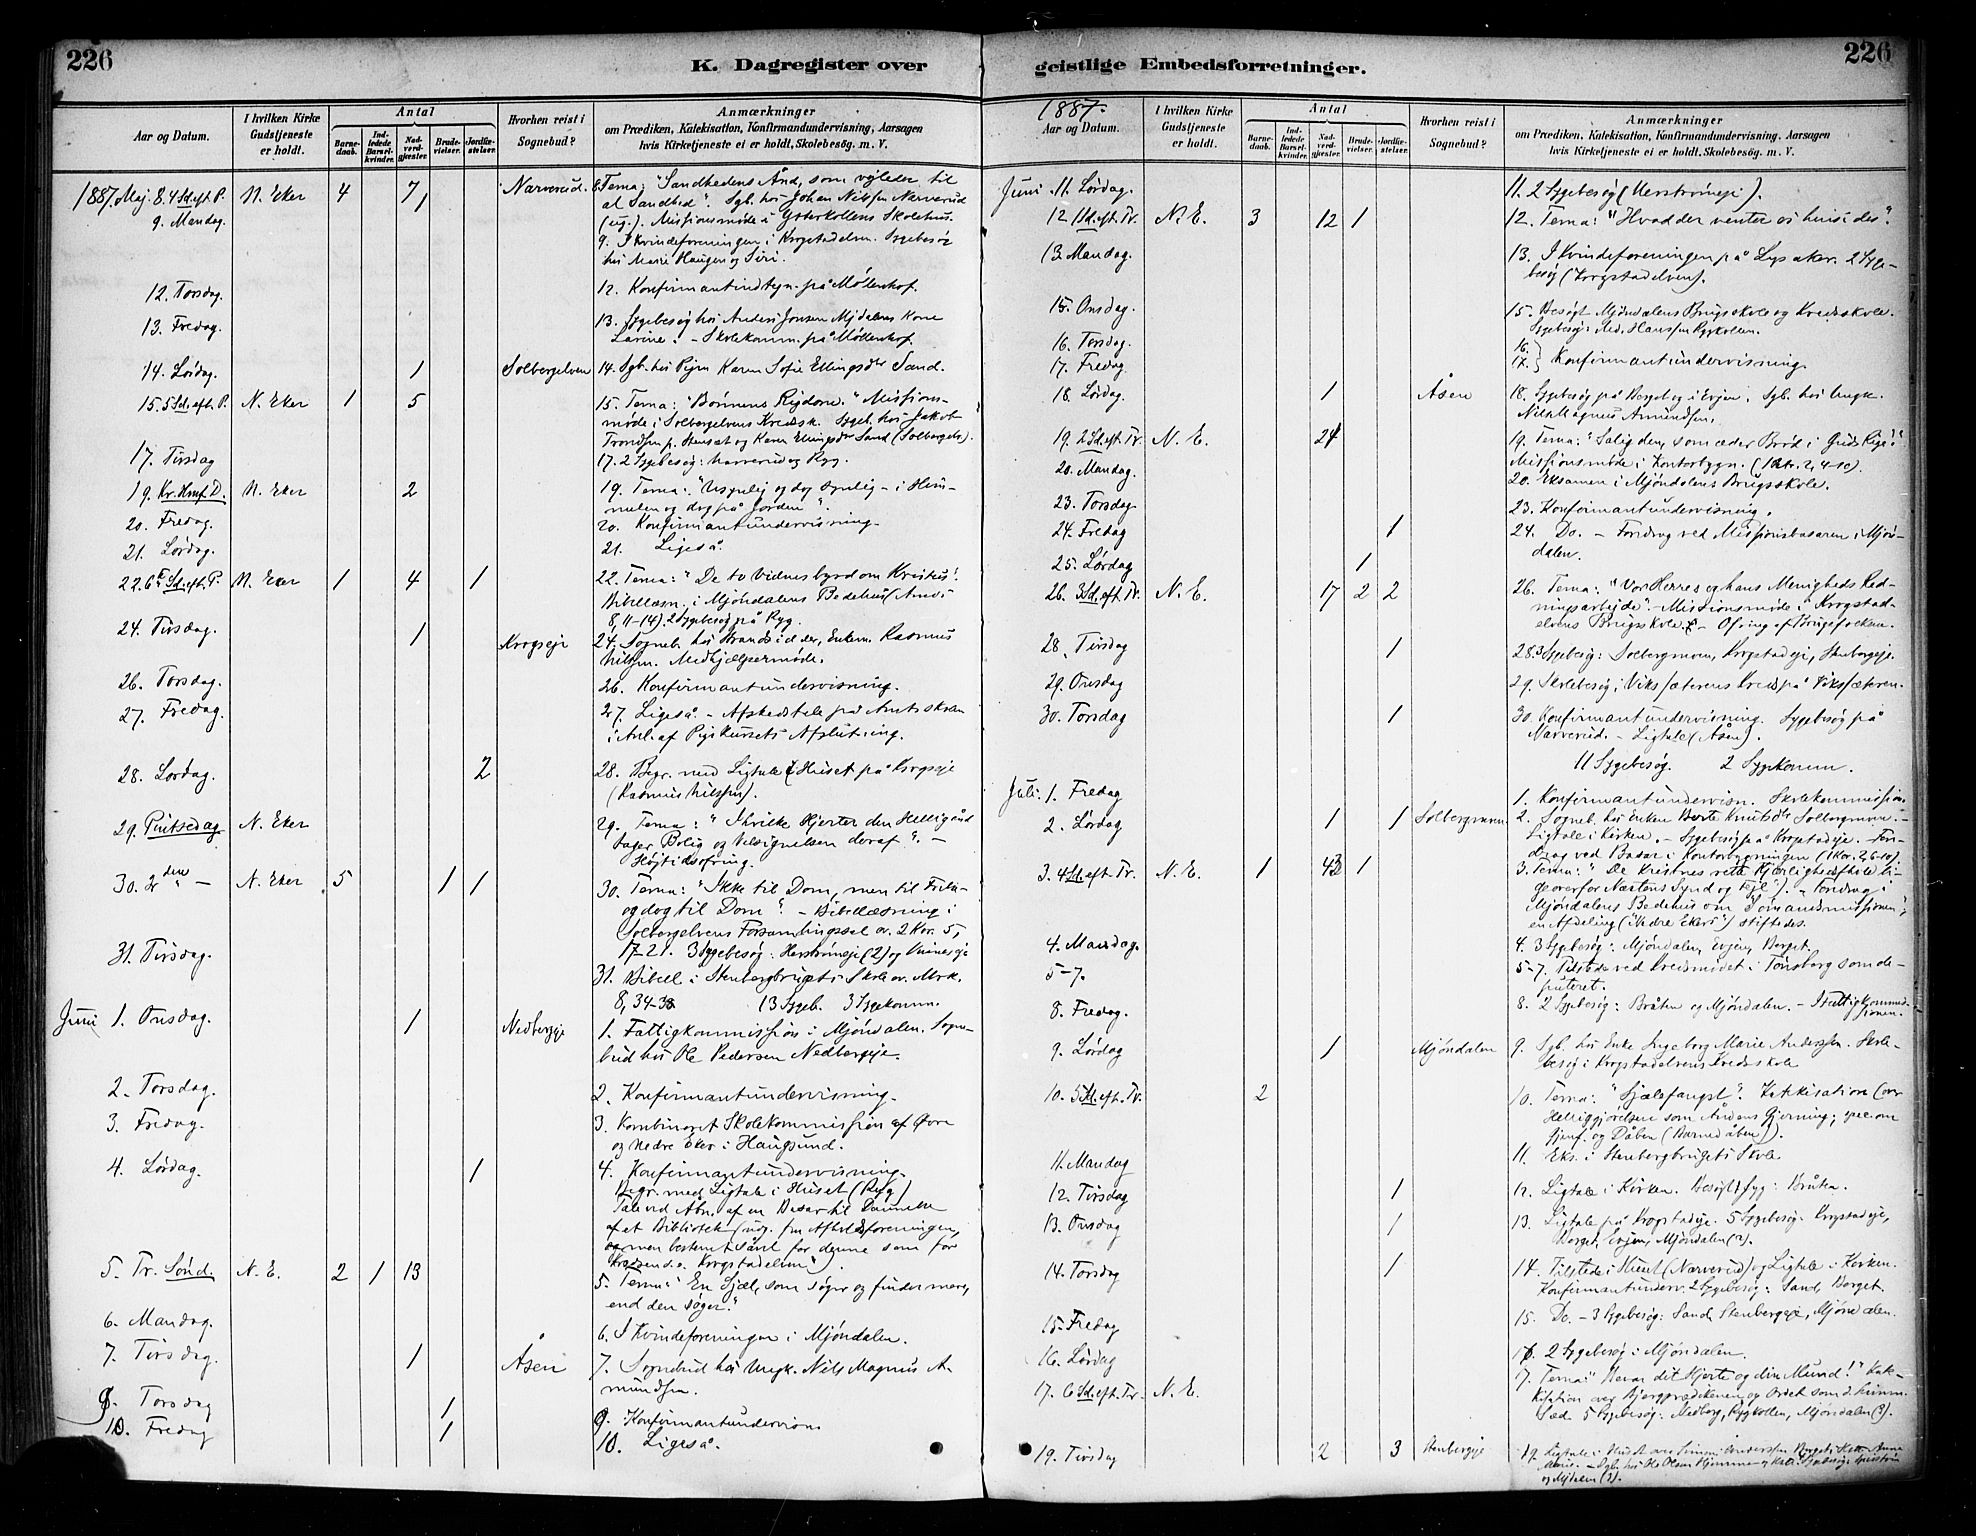 226
K. Dagregister over
Aar og Datum.
I hvilken Kirke Gudstjeneste er holdt.
Antal
Barne-daab.
Ind-ledede Barsel-kvinder.
Nad-verd-gjester.
Brude-vielser.
Jordfæ-stelser.
Hvorhen reist i Sognebud?
Anmærkninger
om Prædiken, Katekisation, Konfirmandundervisning, Aarsagen
hvis Kirketjeneste ei er holdt, Skolebesøg. m. V.
1887. Maj. 8. 4 Sd. eft. P. N. Eker 4 7 1 Narverud. 8. Tema: "Sandhedens Ånd, som vejleder til
al Sandhed". Sgb. hos Johan Nilsen Narverud
(eg.). Missionsmøde i Ytterkollens Skolehus.
9. Mandag.
9. I Kvindeforeningen i Krogstadelven. Sygebesøg
hos Marie Haugen og Siri.
12. Torsdag. 12. Konfirmantindtegn. på Møllenhof.
13. Fredag. 13. Sygebesøg hos Anders Jonsen Mjdalens Kone
Lavine. - Skolekomm. på Møllenhof.
14. Lørdag. 1 Solbergelven 14. Sgb. hos Pigen Karen Sofie Ellingsdtr Sand.
15. 5 Sd. eft. P. N. Eker 1 5 15. Tema: "Bønnens Rigdom." Missions-
møde i Solbergelvens Kredssk. Sygeb. hos Jakob
Trondsen p. Stenset og Karen Ellingsdtr Sand (Solbergelv).
17. Tirsdag 17. 2 Sygebesøg: Narverud og Ryg.
19. Kr. Hmf. D. N. Eker 2 19. Tema: "Usynlig og dog synlig - i Him-
melen og dog på Jorden".
20. Fredag. 20. Konfirmantundervisning.
21. Lørdag. 21. Ligeså.
22. 6te Sd. eft. P. N. Eker 1 4 1 22. Tema: "De to Vidnesbyrd om Kristus".
Bibellæsn. i Mjøndalens Bedehus (Amos
8, 11-14). 2 Sygebesøg på Ryg.
24. Tirsdag. 1 Krogseje 24. Sogneb. hos Mandsidder, Enkem. Rasmus
Nilsen. Medhjælpermøde.
26. Torsdag. 26. Konfirmantundervisning.
27. Fredag. 27. Ligeså. - Afskedstale på Amtsskolen
i Anl. af Pigekursets Afslutning.
28. Lørdag. 2 28. Begr. med Ligtale i Huset på Krogseje
(Rasmus Nilssen).
29. Pintsedag N. Eker 29. Tema: "I hvilke Hjerter den Helligånd
tager Bolig og Velsignelsen deraf". -
Højtidsofring.
30. 2den " - N. Eker 5 1 1 30. Tema: "Ikke til Dom, men til Frelse
og dog til Dom". - Bibellæsning i
Solbergelvens Forsamlingssal ov. 2 Kor. 5,
17-21. 3 Sygebesøg: Herstrømeje (2) og Vinneseje
31. Tirsdag. 31. Bibell. i Stenbergbrugets Skole ov. Mrk.
8, 34-38 13 Sygeb. 3 Sygekomm.
Juni 1. Onsdag. 1 Nedbergeje 1. Fattigkommission i Mjøndalen. Sogne-
bud hos Ole Pedersen Nedbergeje.
2. Torsdag. 2. Konfirmantundervisning.
3. Fredag. 3. Kombineret Skolekommission af Øvre
og Nedre Eker i Haugsund.
4. Lørdag. 1 4. Konfirmantundervisning.
Begr. med Ligtale i Huset (Ryg)
Tale ved Åbn. af en Basar til Dannelse
af et Bibliotek (udg. fra Afholdsforeningen,
men bestemt såvel for denne som for
Kredsen s.o. Krogstadelven").
5. Tr. Sønd. N. E. 2 1 13 5. Tema: "En Sjæl, som søger og finder mere,
end den søger."
6. Mandag. 6. I Kvindeforeningen i Mjøndalen.
7. Tirsdag. 1 Åsen 7. Sognebud hos Ungk. Nils Magnus A-
mundsen.
9. Torsdag 1 9. Konfirmantundervisn
10. Fredag 1 10. Ligeså.
226
geistlige Embedsforretninger.
1887.
Aar og Datum.
I hvilken Kirke Gudstjeneste er holdt.
Antal
Barne-daab.
Ind-ledede Barsel-kvinder.
Nad-verd-gjester.
Brude-vielser.
Jordfæ-stelser.
Hvorhen reist i Sognebud?
Anmærkninger
om Prædiken, Katekisation, Konfirmandundervisning, Aarsagen
hvis Kirketjeneste ei er holdt, Skolebesøg. m. V.
Juni. 11. Lørdag. 11. 2 Sygebesøg (Herstrømeje).
12. 1 Sd. eft. Tr. N. E. 3 12 1 12. Tema: "Hvad der venter os hinsides".
13. Mandag. 13. I Kvindeforeningen på Lysaker. 2 Syge-
besøg (Krogstadelven).
15. Onsdag. 15. Besøgt Mjøndalens Brugsskole og Kredsskole.
Sygebesøg: Hanssen Rygkollen.
16. Torsdag. 16.
17. Fredag 17. } Konfirmantundervisning.
18. Lørdag. 1 Åsen 18. Sygebesøg på Berget og i Evjen. Sgb. hos Ungk.
Nils Magnus Amundsen.
19. 2 Sd. eft. Tr. N. E. 24 19. Tema: "Salig den, som æder Brød i Guds Rige!"
Missionsmøde i Kontorbygn. (1 Ptr. 2, 4-10).
20. Mandag. 20. Eksamen i Mjøndalens Brugsskole.
23. Torsdag 23. Konfirmantundervisning.
24. Fredag 1 24. Do. - Foredrag ved Missionsbasaren i Mjøn-
dalen.
25. Lørdag 1
26. 3 Sd. eft. Tr. N. E. 17 2 2 26. Tema: "Vor Herres og hans Menigheds Red-
ningsarbejde". Missionsmøde i Krogstad-
elvens Brugsskole. - Ofring af Brugsfolkene.
28. Tirsdag 1 28. 3 Sygebesøg: Solbergmoen, Krogstadeje, Stenbergeje.
29. Onsdag 29. Skolebesøg i Vikssæterens Kreds på Vikssæteren.
30. Torsdag 1 30. Konfirmantundervisning. Sygebesøg på
Narverud. - Ligtale (Åsen).
11 Sygebesøg. 2 Sygekomm.
Juli. 1. Fredag 1. Konfirmantundervisn. Skolekommission.
2. Lørdag 1 1 Solbergmoen 2. Sogneb. hos Enken Berte Knutsdtr Solbergmoen. -
Ligtale i Kirken. - Sygebesøg på Krogstadeje. - Fore-
drag ved Basar i Kontorbygningen (1 Kor. 2, 6-10).
3. 4 Sd. eft. Tr. N. E. 1 43 1 3. Tema: "De Kristnes rette Kjærlighedsforhold li-
geoverfor Næstens Synd og Fejl"). - Foredrag i
Mjøndalens Bedehus om Sømandsmissionen;
en Afdeling ("Nedre Eker") stiftedes.
4. Mandag. 4. 3 Sygebesøg: Mjøndalen, Evjen, Berget.
5-7. 5-7. Tilstede ved Kredsmødet i Tønsberg som de-
puteret.
8. Fredag. 8. 2 Sygebesøg: Bråten og Mjøndalen. - I Fattigkommis-
sionen.
9. Lørdag 1 Mjøndalen 9. Sgb. hos Enke Ingeborg Marie Anderssen. Skole-
besøg i Krogstadelvens Kredsskole
10. 5 Sd. eft. Tr. 2 10. Tema: "Sjælefangst". Katekisation (ov.
Helliggjørelsen som Åndens Gjerning; spec. om
Gjenf. og Dåben (Barnedåben)).
11. Mandag 11. Eks. i Stenbergbrugets Skole
12. Tirsdag 1 12. Ligtale i Kirken. Besøgt Syg: Bråten.
13. Onsdag 1 13. Ligtale på Krogstadeje. 5 Sygebesøg: Krogstadeje,
Berget, Evjen, Mjøndalen (2).
14. Torsdag 1 14. Tilstede i Huset (Narverud) og Ligtale i Kirken.
Konfirmantunderv. 2 Sygebesøg: Sand, Berget.
15. Fredag 15. Do. - 3 Sygebesøg: Sand, Stenbergeje, Mjøndalen.
16. Lørdag 16. 2 Sygebesøg i Mjøndalen.
17. 6 Sd. eft. Tr. N. E. 7. Tema: "Bevar dit Hjerte og din Mund!" Kate-
kisation over Bjergprædikenen og Ordet som d. himm.
Sæd. 5 Sygebesøg: Nedberg, Rygkollen, Mjøndalen (3).
19. Tirsdag 2 3 Stenbergeje 19. Ligtale i Huset
og Mjdalen (2).